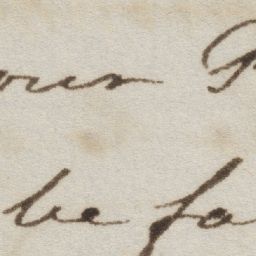 our P
be fa